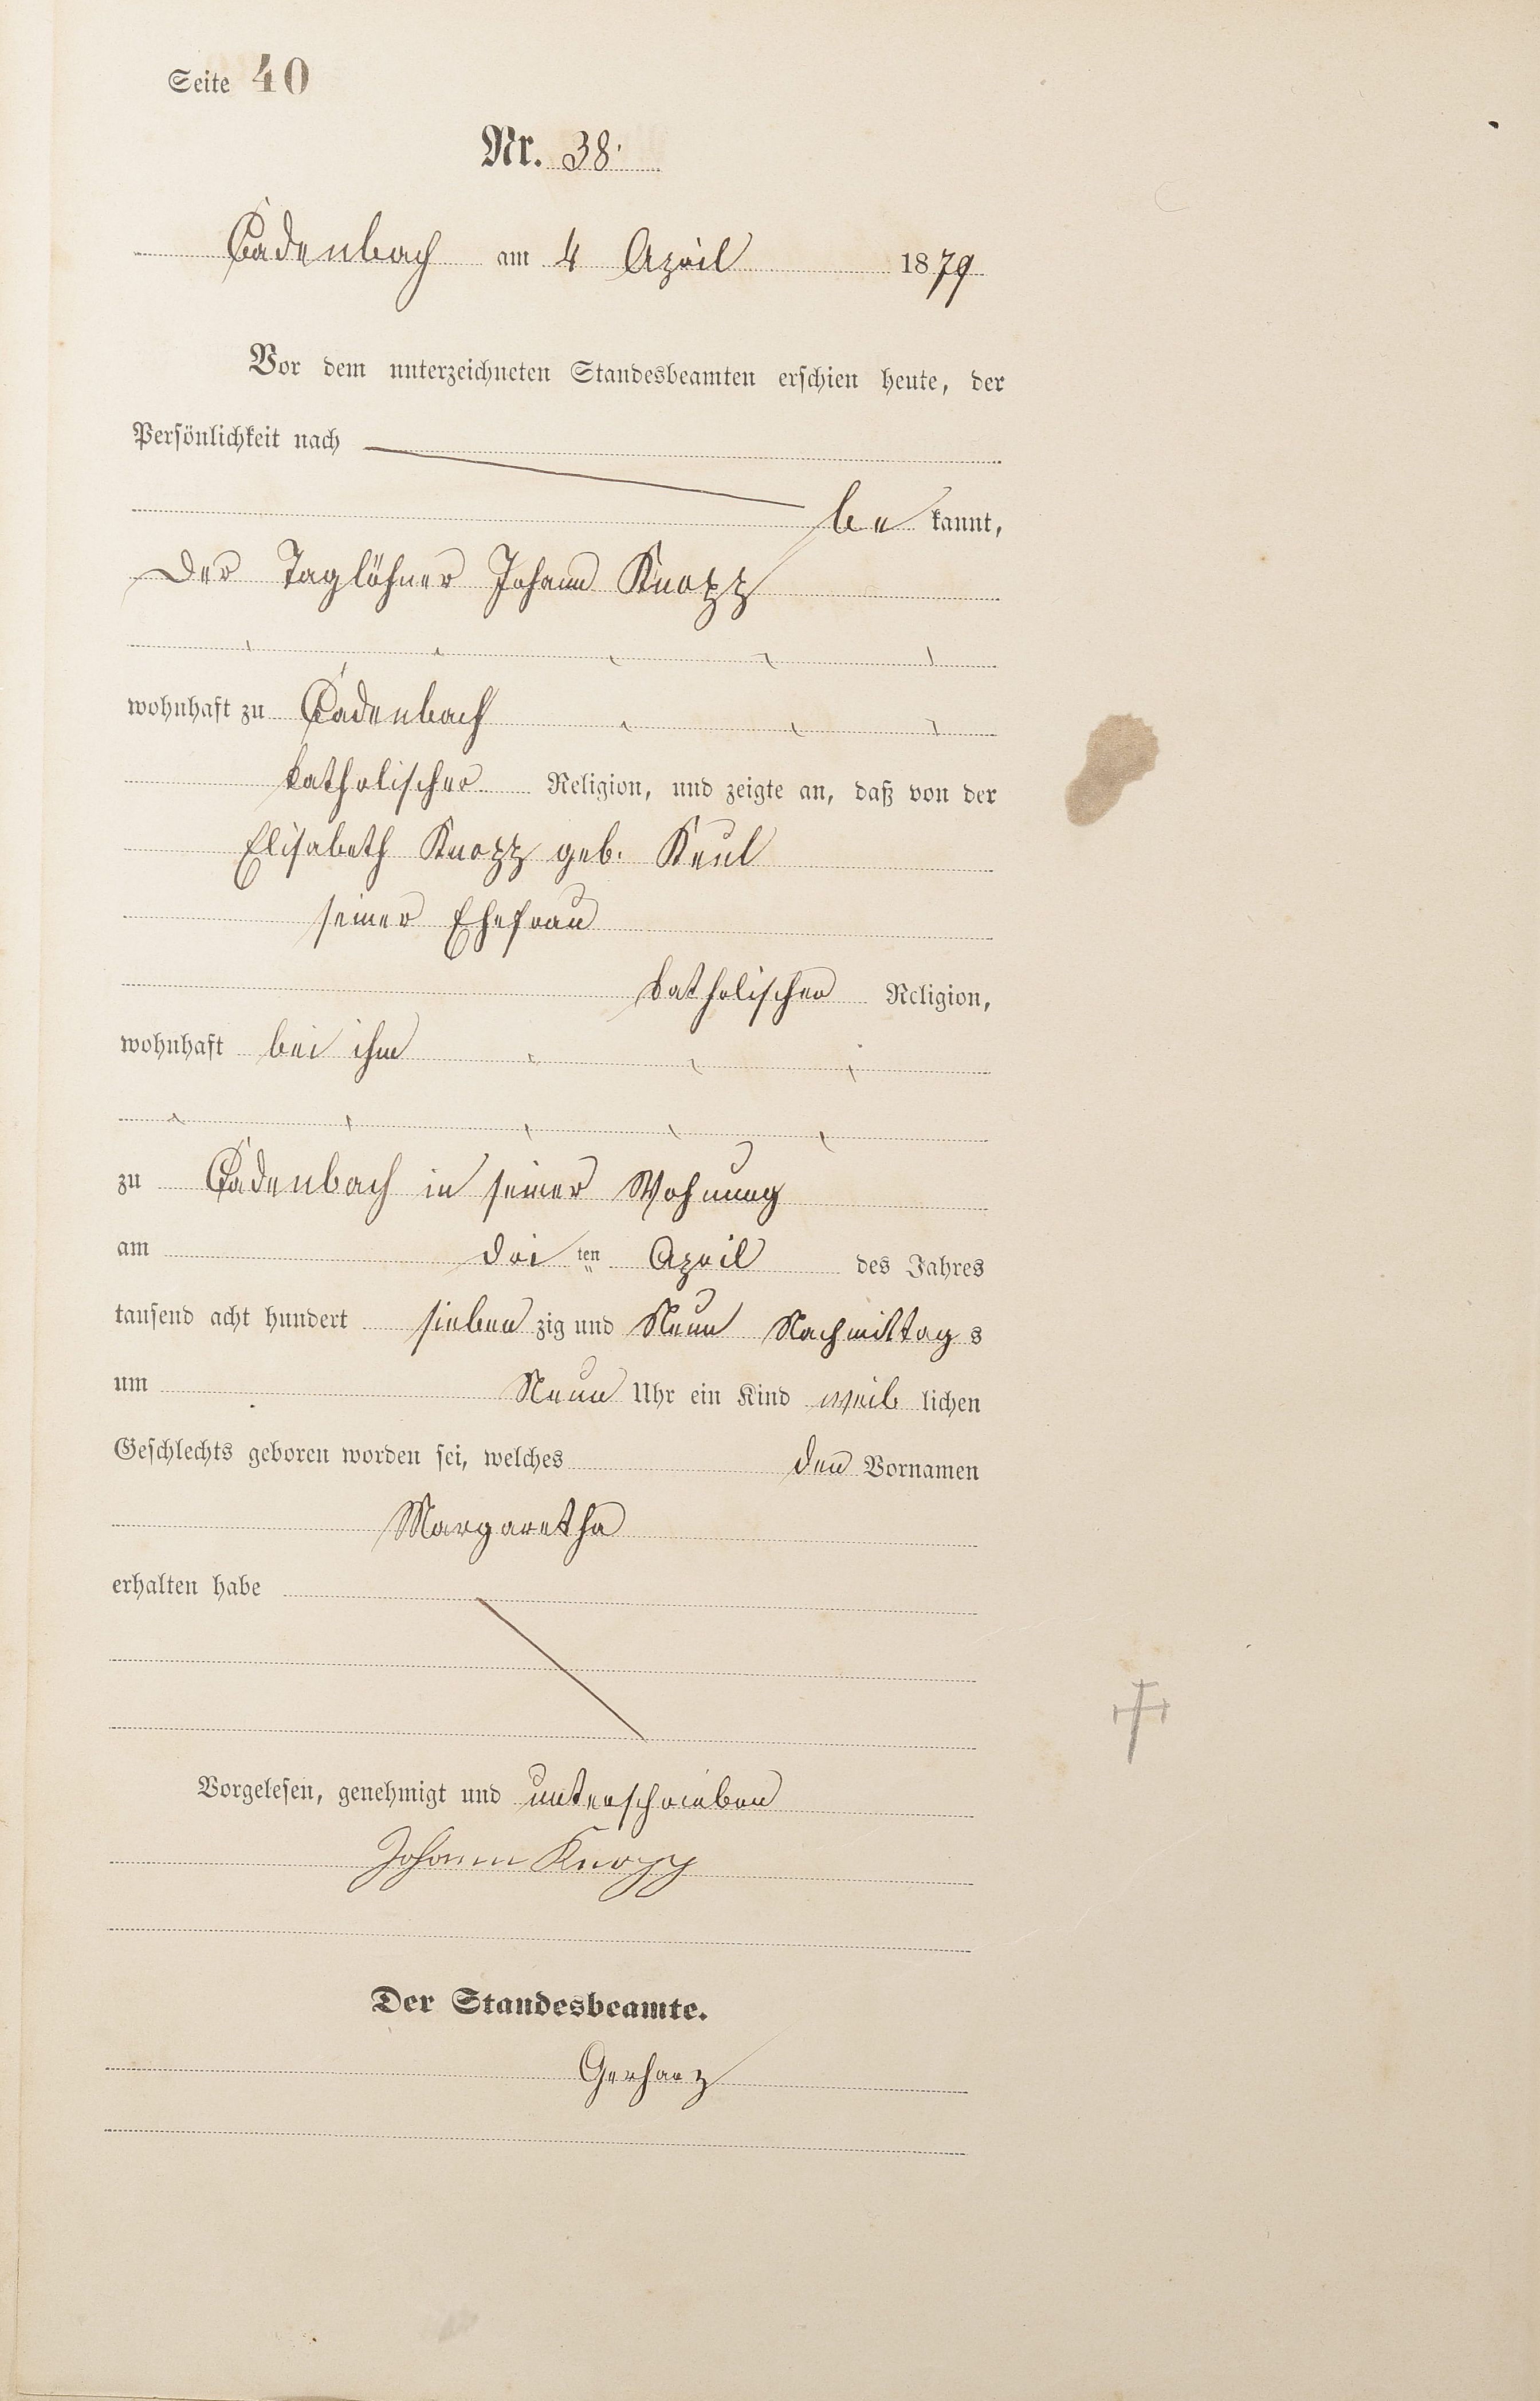 Seite 40
Nr. 38.
Cadenbach am 4 April 1879
Vor dem unterzeichneten Standesbeamten erschien heute, der
Persönlichkeit nach
be kannt,
der Taglöhner Johann Knopp
wohnhaft zu Cadenbach
katholischer Religion, und zeigte an, daß von der
Elisabeth Knopp geb. Keul
seiner Ehefrau
katholischer Religion,
wohnhaft bei ihm
zu Cadenbach in seiner Wohnung
am dri ten April des Jahres
tausend acht hundert sieben zig und Neun Nachmittag s
um Neun Uhr ein Kind weib lichen
Geschlechts geboren worden sei, welches den Vornamen
Margaretha
erhalten habe
Vorgelesen, genehmigt und unterschrieben
Johann Knopp
Der Standesbeamte.
Gerharz